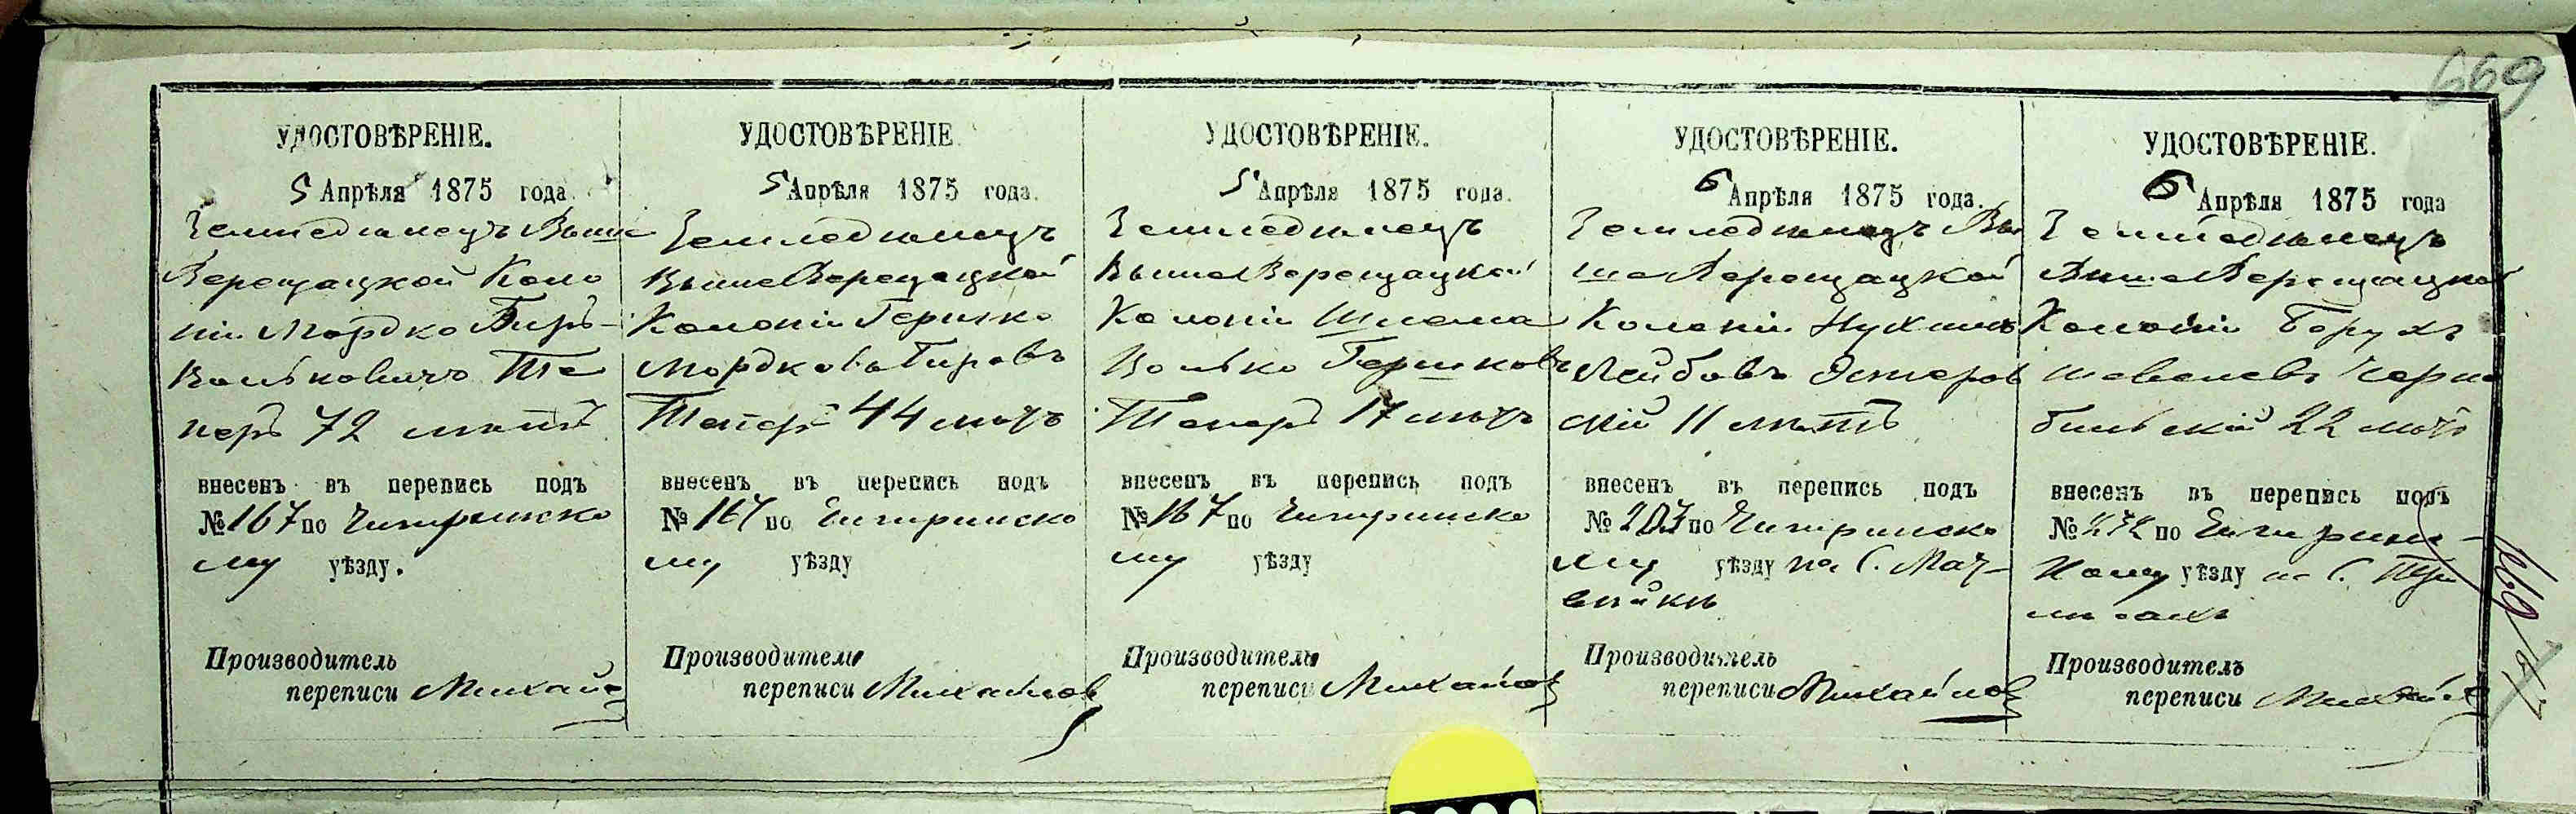 669
УДОСТОВѢРЕНІЕ.
5 Апрѣля 1875 года.
Земледѣлецъ Выше
Верещацкой Коло
ніи Мордко Беръ-
Вольковичъ Те
перъ 72 лѣтъ
внесенъ въ перепись подъ
№ 167 по Чигиринско
му уѣзду.
Производитель
переписи Михайло
УДОСТОВѢРЕНІЕ
5 Апрѣля 1875 года.
Земледѣлецъ
ВышеВерещацкой
Колоніи Гершко
Мордковъ Беровъ
Теперъ 44 лѣтъ
внесенъ въ перепись подъ
№ 167 по Чигиринско
му уѣзду
Производитель
переписи Михайловъ
УДОСТОВѢРЕНІЕ.
5 Апрѣля 1875 года.
Земледѣлецъ
ВышеВерещацкой
Колоніи Шлема
Волько Гершковъ
Теперъ 17 лѣтъ
внесенъ въ перепись подъ
№ 167 по Чигиринско
му уѣзду
Производитель
переписи Михайловъ
УДОСТОВѢРЕНІЕ.
5 Апрѣля 1875 года.
Земледѣлецъ Вы
шеВерещацкой
Колоніи Нухимъ
Лейбовъ Эстеров
скій 11 лѣтъ
внесенъ въ перепись подъ
№ 203 по Чигиринско
му уѣзду по С. Мат-
вѣйкѣ
Производитель
переписи Михайловъ
УДОСТОВѢРЕНІЕ.
5 Апрѣля 1875 года
Земледѣлецъ
ВышеВерещацкой
Колоніи Борухъ
Шевелевъ Черно
бильскій 22 лѣтъ
внесенъ въ перепись подъ
№ 272 по Чигиринс-
кому уѣзду по С.
Производитель
переписи Михайлов